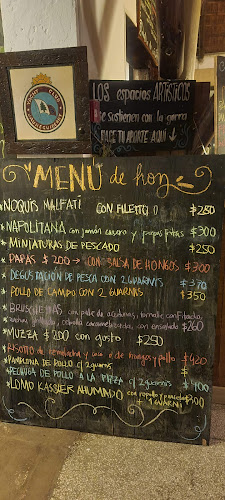 LOS espacios ARTÍSTICOS
se sostienen con la gorra
HACE TU APORTE AQUÍ
MENÚ de hoy
*ÑOQUIS MALFATI CON FILETTO O $280
*NAPOLITANA con jamón casero y papas fritas $300
*MINIATURAS DE PESCADO $250
*PAPAS $200 CON SALSA DE HONGOS $300
*DEGUSTACIÓN DE PESCA CON 2 GUARNIS $370
*POLLO DE CAMPO CON 2 GUARNIS $350
*BRUSCHETTAS con paté de aceitunas, tomate confitado
cebolla caramelizada, con ensalada $260
*MUZZA $200 con gusto $250
*RISOTTO de remolacha y uno de hongos y pollo $420
*PAMPLONA DE POLLO c/ 2 guarnis $
*PECHUGA DE POLLO A LA PIZZA c/ 2 guarnis $400
*LOMO KASSLER AHUMADO con repollo y
1 GUARNI $300